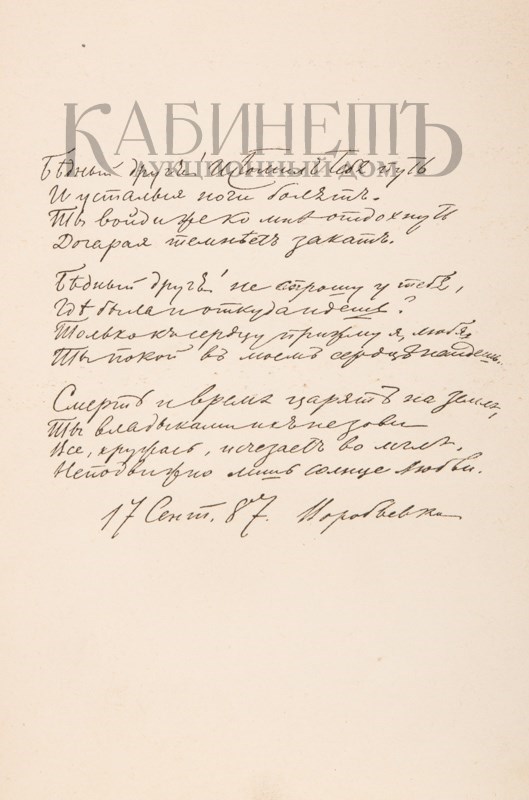 КАБИНЕТЪ
АУКЦИОННЫЙ ДОМ
Бѣдный другъ! Истомилъ тебя путь
И усталыя ноги болятъ.
Ты войди же ко мнѣ отдохнуть
Догорая темнѣетъ закатъ.
Бѣдный другъ! не спрошу у тебя,
Гдѣ была и откуда идешь?
Только къ сердцу прижму я, любя
Ты покой въ моемъ сердцѣ найдешь.
Смерть и время царятъ на земле,
Ты владыками ихъ не зови
Все, кружась, исчезаетъ во мглѣ,
Неподвижно лишь солнце любви.
17 Сент. 87. Воробьевка